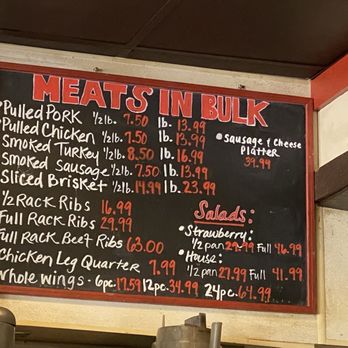 MEATS IN BULK
Pulled Pork 1/2 lb. 7.50 lb. 13.99
Pulled Chicken 1/2 lb. 7.50 lb. 13.99
Smoked Turkey 1/2 lb. 8.50 lb. 16.99
Smoked Sausage 1/2 lb. 7.50 lb. 13.99
Sliced Brisket 1/2 lb. 14.99 lb. 23.99
1/2 Rack Ribs 16.99
Full Rack Ribs 29.99
Full Rack Beef Ribs 63.00
Chicken Leg Quarter 7.99
Whole wings - 6pc. 17.59 12pc. 34.99 24pc. 64.99
• Sausage & Cheese
Platter
39.99
Salads:
• Strawberry:
1/2 pan 29.99 Full 46.99
• House:
1/2 pan 27.99 Full 41.99